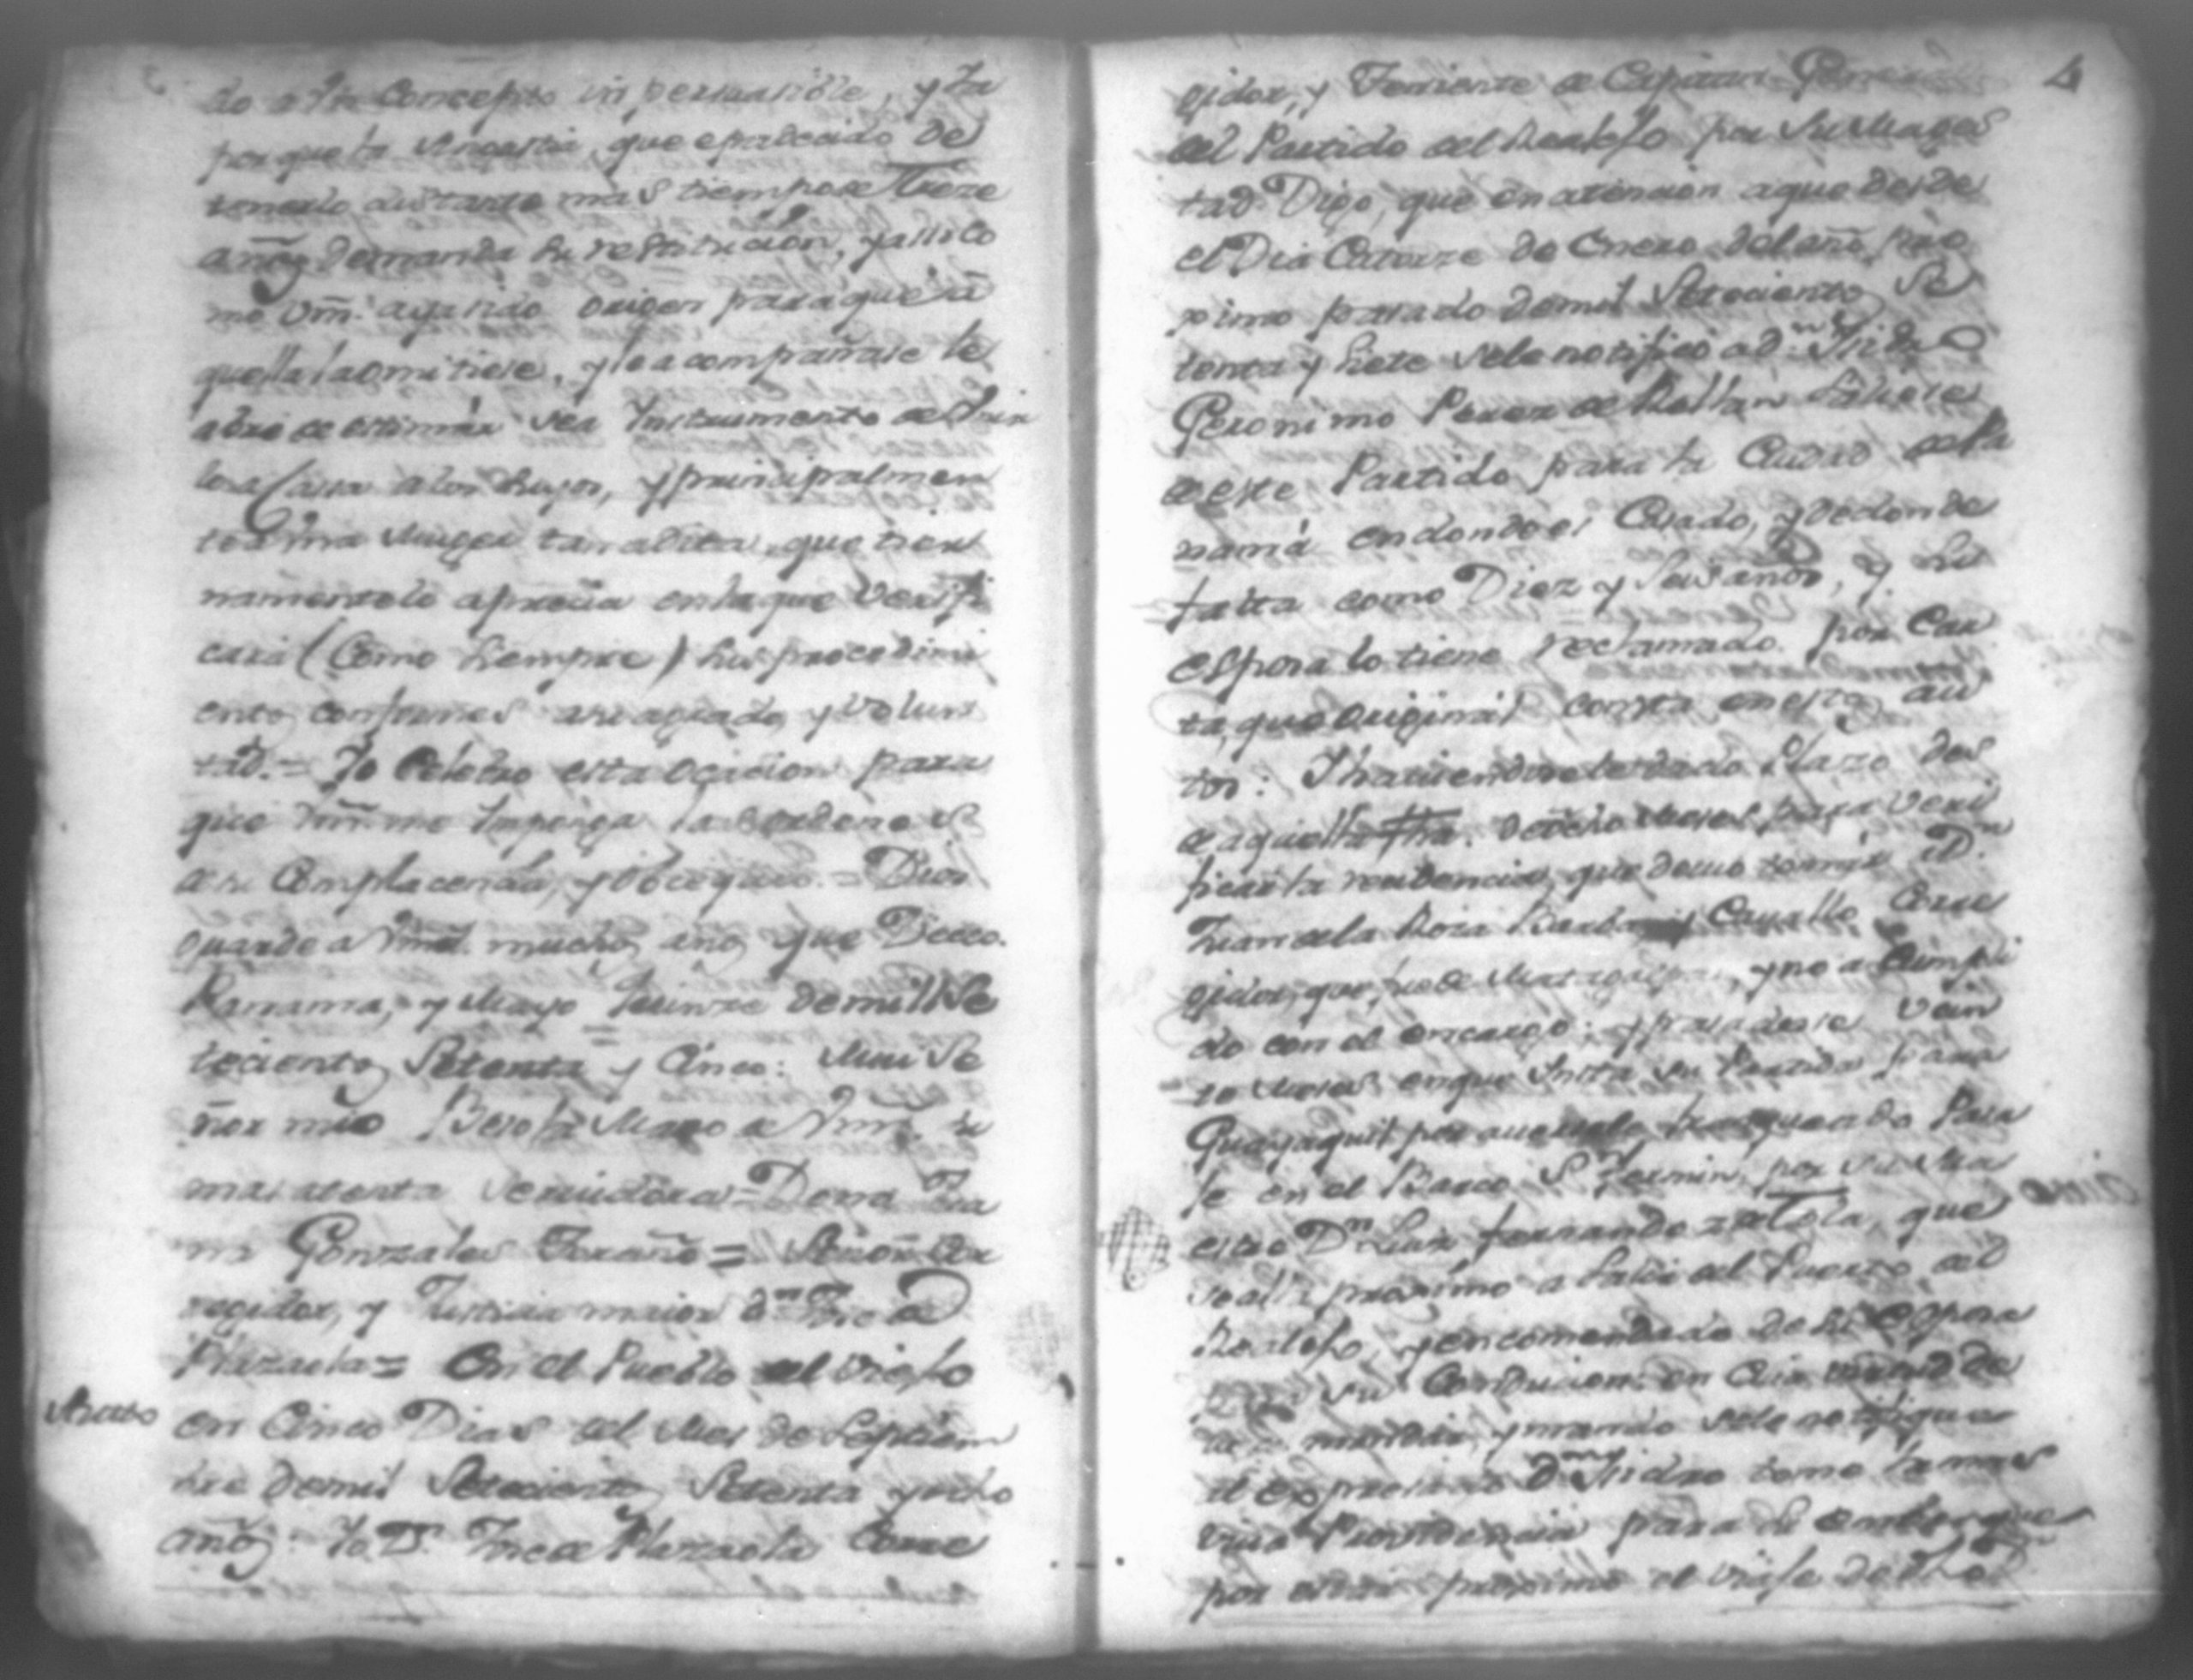 do a la Concepto impersuasible, y la
porque la que e padecido de
tenerlo distante mas tiempo de Treze
años demanda su restitucion, y assi co
mo Vm. aya sido origen para que a
quella la omitiese, y le acompañase le
abre de estimar sea Instrumento de
Casa a los suyos, y principalmen
te a una Muger tan adita, que tier
namente le aprecia en la que verifi
cará (Como siempre) sus procedimi
entos conformes a su agrado, y volun
tad. = Yo Celebro esta ocacion para
que Vm. me Imponga las ordenes
de su Complacencia, y obcequio. = Dios
guarde a Vmd. muchos años que Deceo.
Panama, y Mayo quinze de mill Se
tecientos Setenta y Cinco: Mui Se
ñor mio Beso la Mano de Vm. su
mas atenta servidora = Dona
Gonzales = Señor Cor
regidor, y Justicia maior Dn. Jose de
Plazaola = En el Pueblo del Viejo
en Cinco Dias del Mes de Septiem
bre de mil Setecientos Setenta y ocho
años: Yo Dn. Jose de Plazaola Corre
4
gidor, y Teniente de Capitan General
del Partido del Realejo por Su Mages
tad. Digo, que en atencion a que desde
el Dia Catorze de Enero del año pro
ximo pasado de mil Setecientos Se
tenta y siete se le notificó a Dn. Isidro
Geronimo Perez de Rollan saliese
de este Partido para la Ciudad de Pa
namá en donde es Casado, y de donde
falta como Diez y Seis años, y su
esposa lo tiene reclamado por Car
ta, que original consta en estos au
tos: I haviendosele dado Plazo des
de aquella fha. de ocho meses para veri
ficar la recidencia, que devio tomár a Dn.
Juan de la Rosa Cavallo, Corre
gidor, que fue de Matagalpa, y no a Cumpli
do con el encargo; y pasadose vein
te Meses en que Insta su Partida para
Guayaquil por haversele franqueado Pasa
je en el Barco S. Fermin, por su Ma
estre Dn. Luis Fernandez de Tola, que
se alla proximo a Salir del Puerto del
Realejo, y encomendado de su esposa
para su Conduccion: en Cuia virtud de
via mandár, y mando se le notifique
al expresado Dn. Isidro tome la mas
viva Providencia para su embarque
por estár proximo el viaje de dho